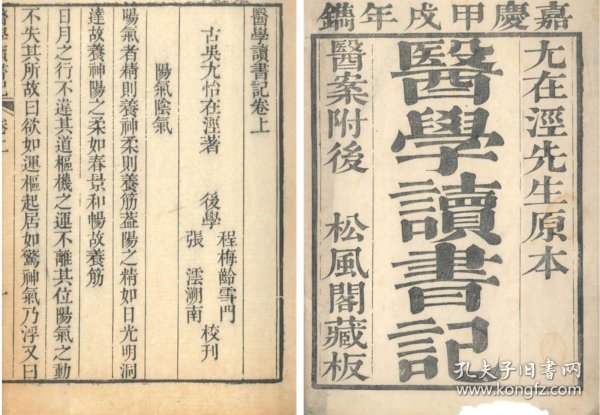 嘉慶甲戌年鐫
尤在涇先生原本
醫學讀書記
醫案附後 松風閣藏板
醫學讀書記卷上
古吳尤怡在涇著 後學 程梅齡雪門
張 澐溯南 校刊
陽氣陰氣
陽氣者精則養神柔則養筋蓋陽之精如日光明洞
達故養神陽之柔如春景和暢故養筋
日月之行不違其道樞機之運不離其位陽氣之動
不失其所故曰欲如運樞起居如驚神氣乃浮又曰
醫學讀書記 卷上 一
孔夫子旧书网
www.kongfz.com